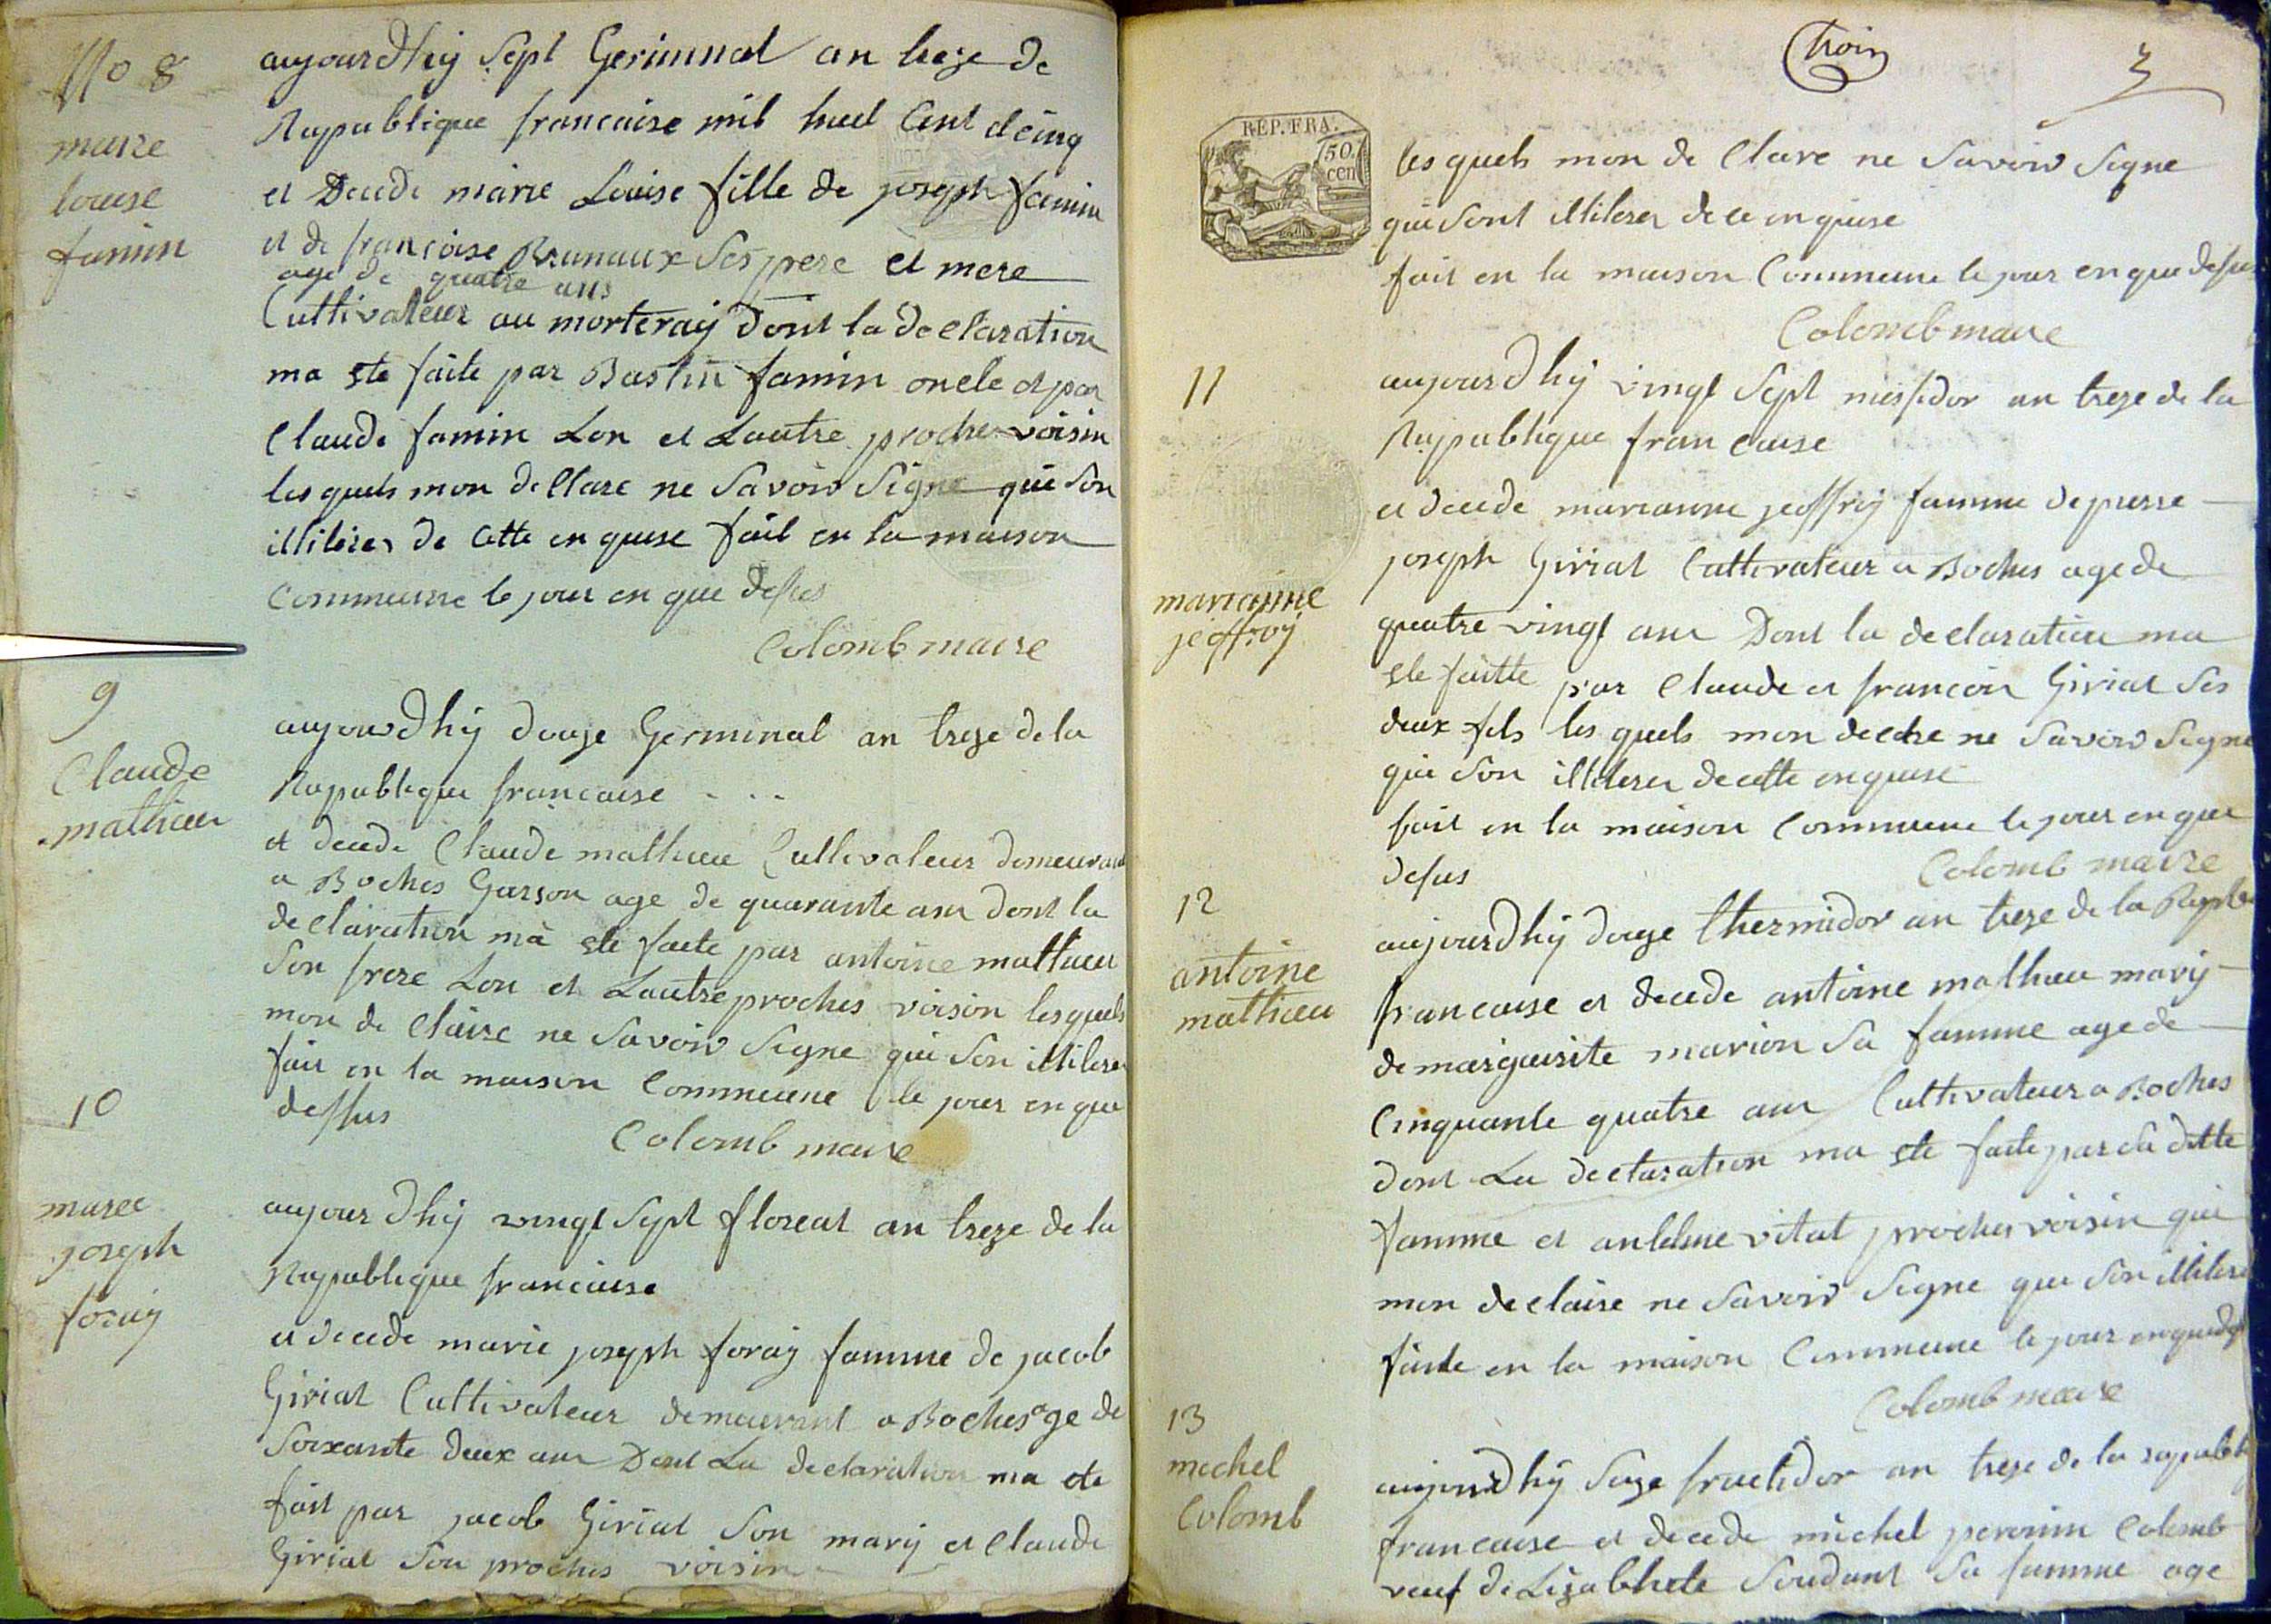 No 8
marie
louise
famin
aujourdhij sept Gerimnal an treze de
Republique francaise mil huit Cent et cinq
et Decede marie Louise fille de joseph famin
et de francoise Brunaux Ses pere et mere
age de quatre ans
Cultivateur au morteraij dont la declaration
ma ete faite par Bastin famin oncle et par
Claude famin Lon et Lautre proches voisin
les quels mon de Clare ne Savoir Signe que Son
illiterer de Cette en quise fait en la maison
Commune le jour en que desus
Colomb maire
9
Claude
mathieu
aujourdhij douze Germinal an treze de la
Republique francaise . . .
et decede Claude mathieu Cultivateur demeurant
a Boches Garson age de quarante ans dont la
declaration ma ete faite par antoine mathieu
Son frere Lon et Lautre proches voison lesquels
mon de Claire ne Savoir Signe que Son illiterer
fait en la maison Commune le jour en que
dessus
Colomb maire
10
marie
joseph
foraij
aujourdhij vingt Sept floreal an treze de la
Republique francaise
et decede marie joseph foraij famme de jacob
Giriat Cultivateur demeurant a Boches age de
Soixante deux ans Dont La declaration ma ete
fait par jacob Giriat Son marij et Claude
Giriat Son proches voisin
trois
3
REP. FRA.
50.
cen
les quels mon de Clare ne Savoir Signe
que Sont illiterer de ce en quise
fait en la maison Commune le jour en que desus
Colomb maire
11
marianne
jeoffroij
aujourdhij vingt Sept messidor an treze de la
Republique francaise
et decede marianne jeoffrij famme de pierre
joseph Giriat Cultivateur a Boches age de
quatre vingt ans Dont la declaration ma
ete faitte par Claude et francois Giriat Ses
deux fils les quels mon declare ne Savoir Signe
que Son illiterer de cette enquise
fait en la maison Commune le jour en que
desus
Colomb maire
12
antoine
mathieu
aujourdhij douze thermidor an treze de la Repub
francaise et decede antoine mathieu marij
de marguerite marion Sa famme age de
Cinquante quatre ans Cultivateur a Boches
dont La declaration ma ete faite par Sa ditte
famme et antelme vitat proches voisin qui
mon declaire ne Savoir Signe que Son illiterer
faite en la maison Commune le jour en que desus
Colomb maire
13
mechel
Colomb
aujourdhij Saze fructidor an treze de la republi
francaise et decede michel peronin Colomb
veuf de Lizabhete Soudant Sa famme age